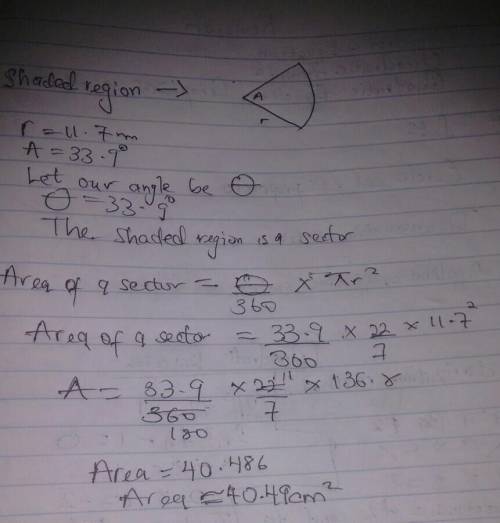 Shaded region →
A
r
r = 11.7m
A = 33.9°
Let our angle be Θ
Θ = 33.9°
The shaded region is a sector
Area of a sector = Θ/360 × πr²
Area of a sector = 33.9/360 × 22/7 × 11.7²
A = 33.9/360 × 22/7 × 136.8
11
180
Area = 40.486
Area = 40.49cm²